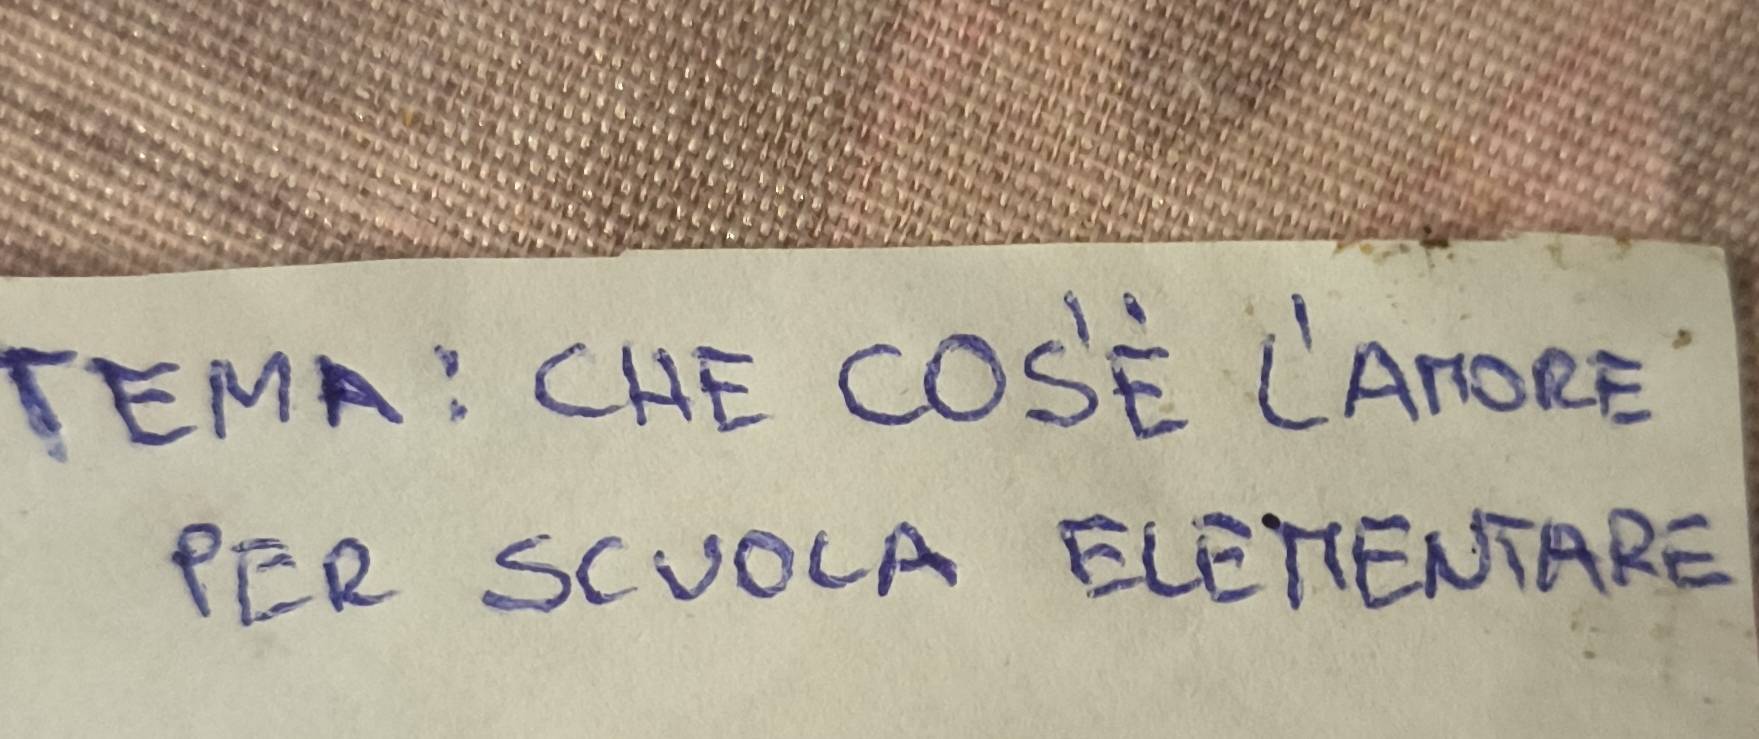 TEMA: CHE COS'È L'AMORE
PER SCUOLA ELEMENTARE